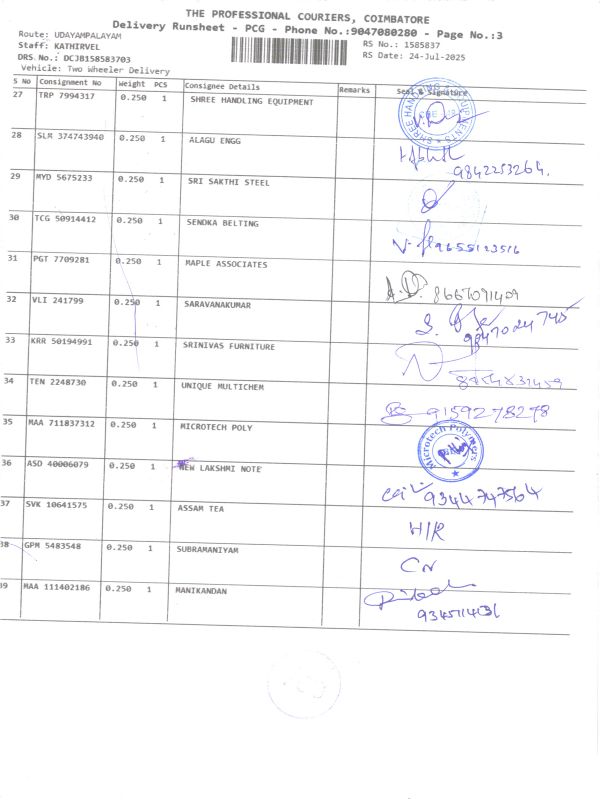 THE PROFESSIONAL COURIERS, COIMBATORE
Delivery Runsheet - PCG - Phone No.:9047080280 - Page No.:3
Route: UDAYAMPALAYAM
Staff: KATHIRVEL
DRS.No.: DCJB158583703
Vehicle: Two Wheeler Delivery
RS No.: 1585837
RS Date: 24-Jul-2025
S No Consignment No Weight PCS Consignee Details Remarks Seal & Signature
27 TRP 7994317 0.250 1 SHREE HANDLING EQUIPMENT
28 SLR 374743940 0.250 1 ALAGU ENGG
9842253264.
29 MYD 5675233 0.250 1 SRI SAKTHI STEEL
30 TCG 50914412 0.250 1 SENDKA BELTING
9655123516
31 PGT 7709281 0.250 1 MAPLE ASSOCIATES
8667091409
32 VLI 241799 0.250 1 SARAVANAKUMAR
33 KRR 50194991 0.250 1 SRINIVAS FURNITURE
34 TEN 2248730 0.250 1 UNIQUE MULTICHEM
9159278278
35 MAA 711837312 0.250 1 MICROTECH POLY
Microtech Polymers
36 ASD 40006079 0.250 1 NEW LAKSHMI NOTE
9344747564
37 SVK 10641575 0.250 1 ASSAM TEA
H/R
38 GPM 5483548 0.250 1 SUBRAMANIYAM
CN
39 MAA 111402186 0.250 1 MANIKANDAN